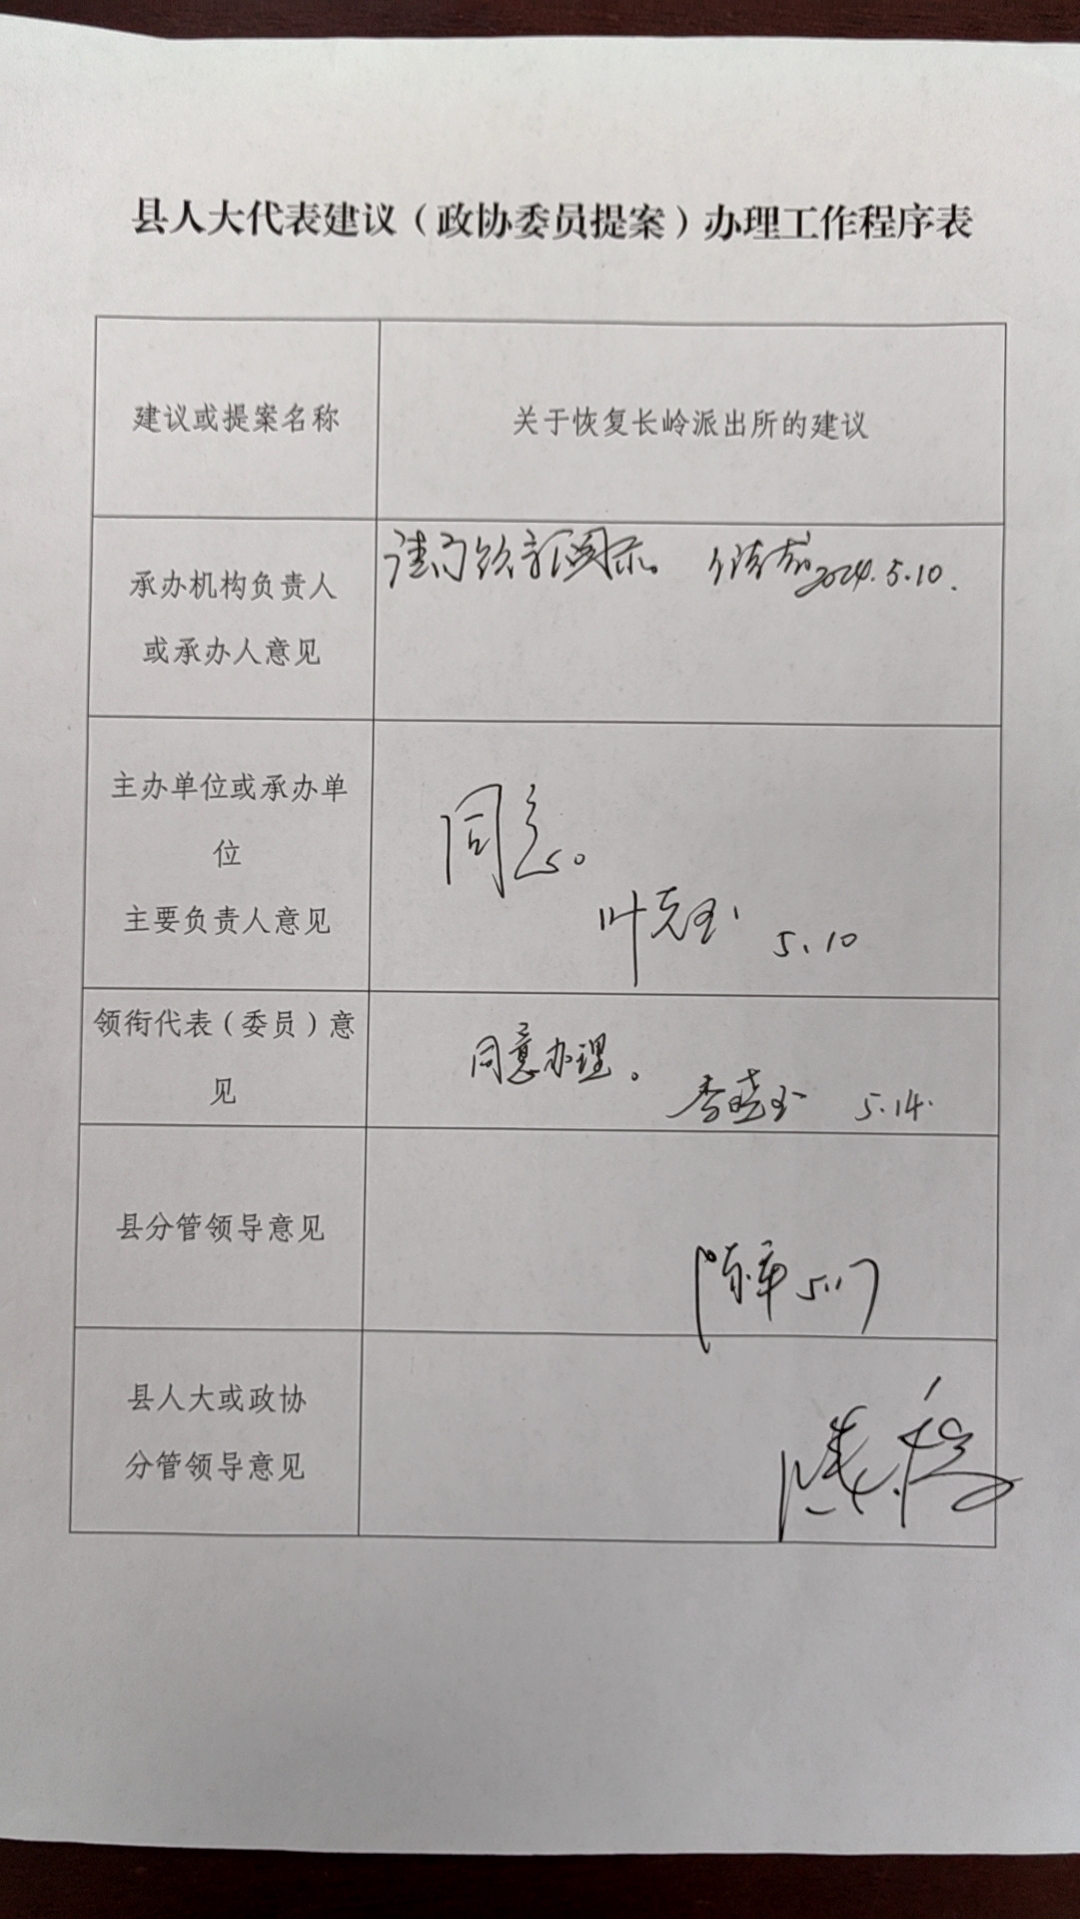 县人大代表建议（政协委员提案）办理工作程序表
建议或提案名称
关于恢复长岭派出所的建议
承办机构负责人
或承办人意见
请 阅示。 2024.5.10.
主办单位或承办单
位
主要负责人意见
同意。
叶克玉 5.10
领衔代表（委员）意
见
同意办理。
李晓玉 5.14.
县分管领导意见
陈军 5.17
县人大或政协
分管领导意见